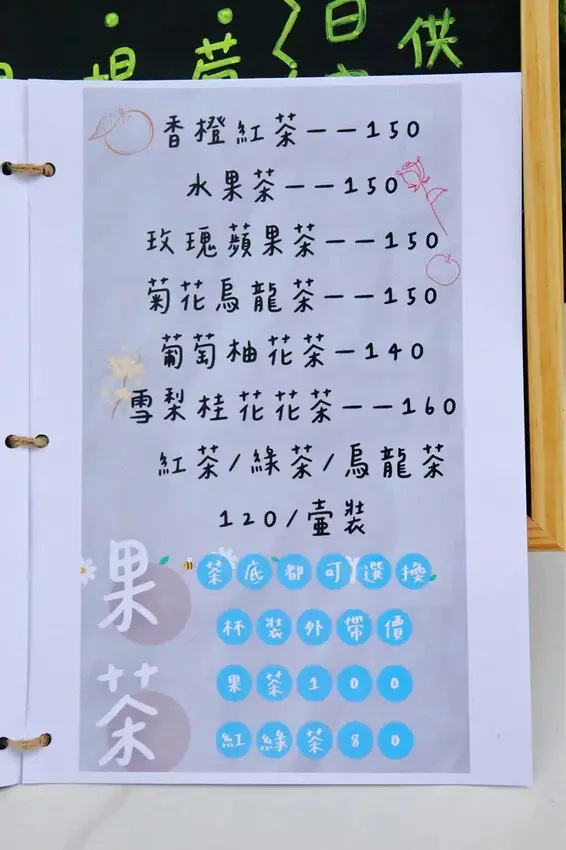 供
香橙紅茶——150
水果茶——150
玫瑰蘋果茶——150
菊花烏龍茶——150
葡萄柚花茶—140
雪梨桂花花茶——160
紅茶/綠茶/烏龍茶
120/壺裝
果茶
茶底都可選換
杯裝外帶價
果茶100
紅綠茶80